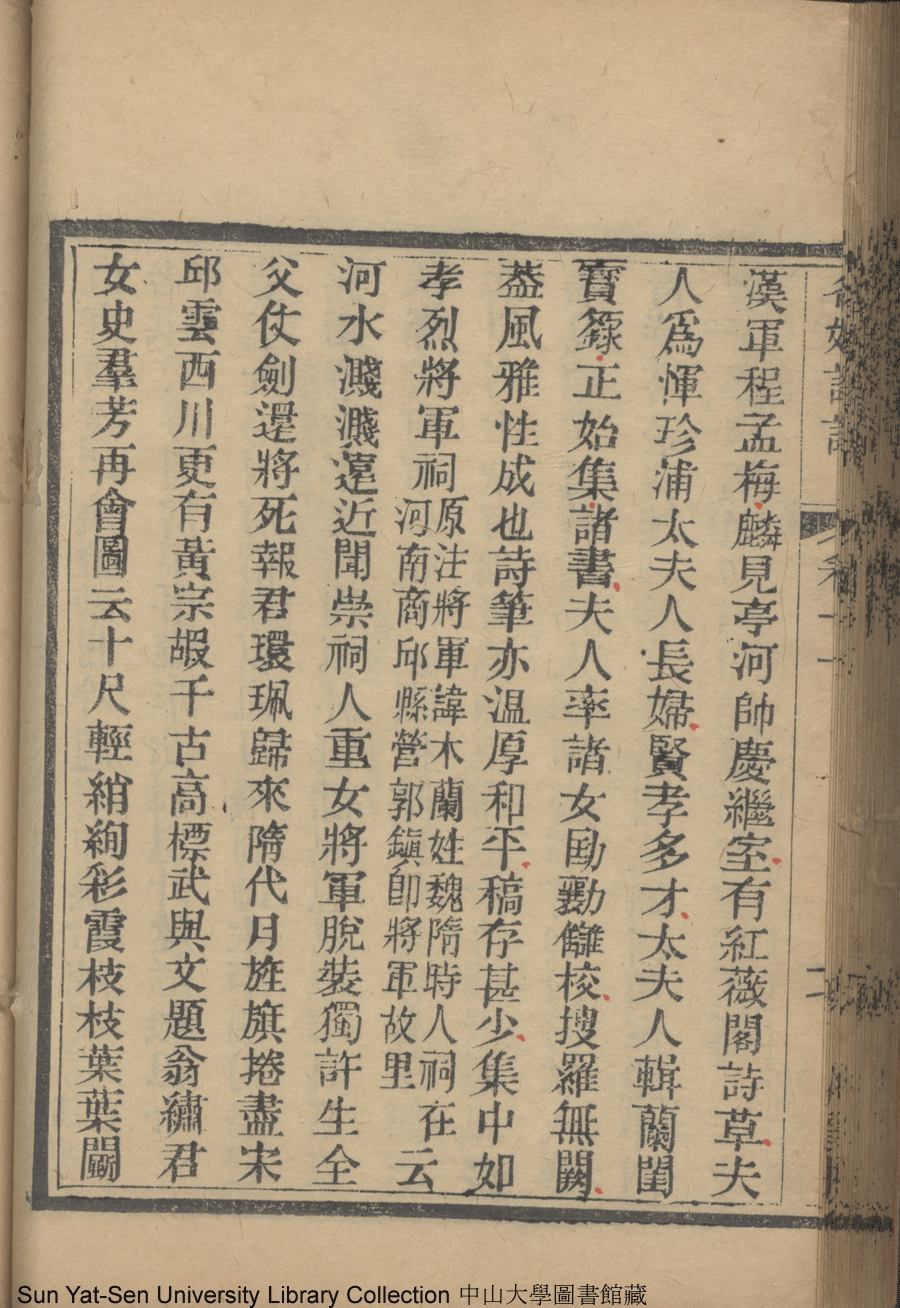 漢軍程孟梅麟見亭河帥慶繼室有紅薇閣詩草夫
人爲惲珍浦太夫人長婦賢孝多才太夫人輯蘭閨
寶錄正始集諸書夫人率諸女勷讎校搜羅無闕
葢風雅性成也詩筆亦溫厚和平稿存甚少集中如
孝烈將軍祠原注將軍諱木蘭姓魏隋時人祠在河南商邱縣營郭鎭卽將軍故里云
河水濺濺遠近聞崇祠人重女將軍脫裝獨許生全
父仗劍還將死報君環珮歸來隋代月旌旗捲盡宋
邱雲西川更有黃宗嘏千古高標武與文題翁繡君
女史羣芳再會圖云十尺輕綃絢彩霞枝枝葉葉鬭
Sun Yat-Sen University Library Collection 中山大學圖書館藏